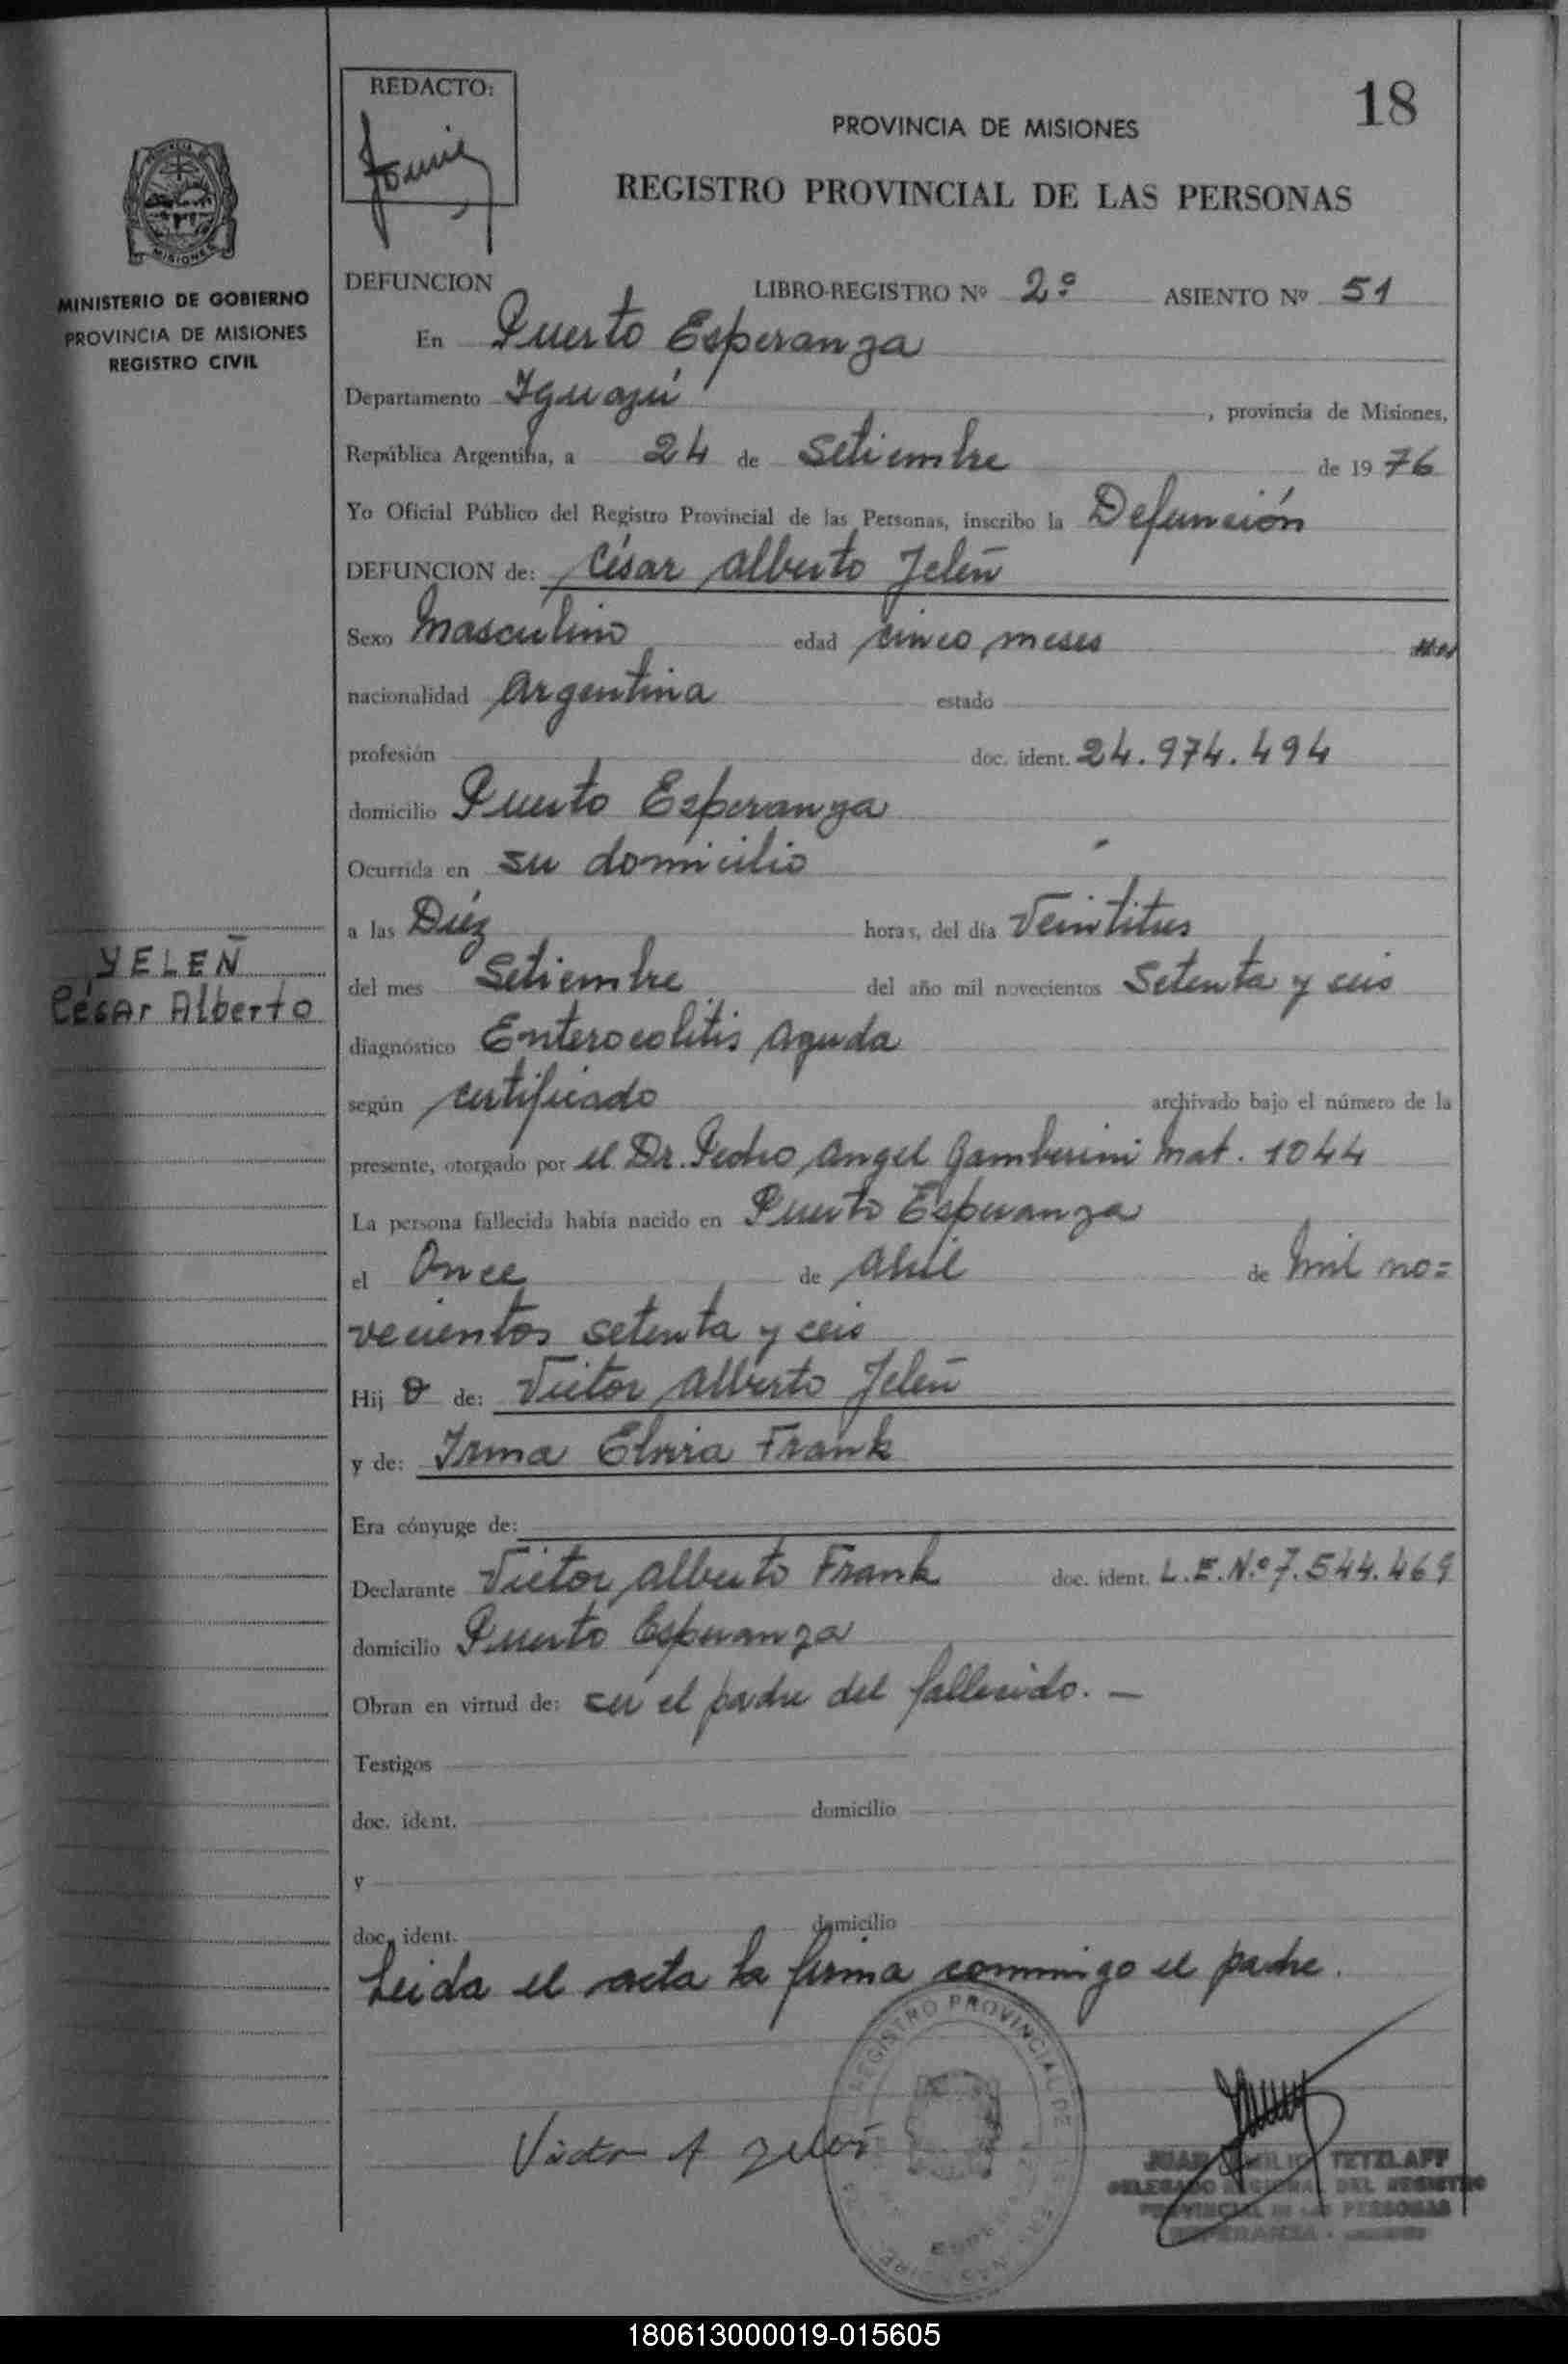 REDACTO:
18
PROVINCIA DE MISIONES
REGISTRO PROVINCIAL DE LAS PERSONAS
MISIONES
MINISTERIO DE GOBIERNO
PROVINCIA DE MISIONES
REGISTRO CIVIL
DEFUNCION LIBRO-REGISTRO Nº 2º ASIENTO Nº 51
En Puerto Esperanza
Departamento Iguazú, provincia de Misiones,
República Argentina, a 24 de Setiembre de 1976
Yo Oficial Público del Registro Provincial de las Personas, inscribo la Defunción
DEFUNCION de: César Alberto Jeleñ
Sexo Masculino edad cinco meses
nacionalidad Argentina estado
profesión doc. ident. 24.974.494
domicilio Puerto Esperanza
Ocurrida en su domicilio
a las Diéz horas, del día Veintitres
YELEÑ
César Alberto
del mes Setiembre del año mil novecientos Setenta y seis
diagnóstico Enterocolitis Aguda
según certificado archivado bajo el número de la
presente, otorgado por el Dr. Pedro Angel Gamberini Mat. 1044
La persona fallecida había nacido en Puerto Esperanza
el Once de Abril de Mil no=
vecientos setenta y seis
Hijo de: Victor Alberto Jeleñ
y de: Irma Elvira Frank
Era cónyuge de:
Declarante Victor Alberto Frank doc. ident. L.E.Nº 7.544.469
domicilio Puerto Esperanza
Obran en virtud de: ser el padre del fallecido. -
Testigos
doc. ident. domicilio
y
doc. ident. domicilio
Leida el acta la firma conmigo el padre.
REGISTRO PROVINCIAL DE
Victor A
JUAN TETZLAFF
DELEGADO REGIONAL DEL REGISTRO
PROVINCIAL DE LAS PERSONAS
ESPERANZA
180613000019-015605